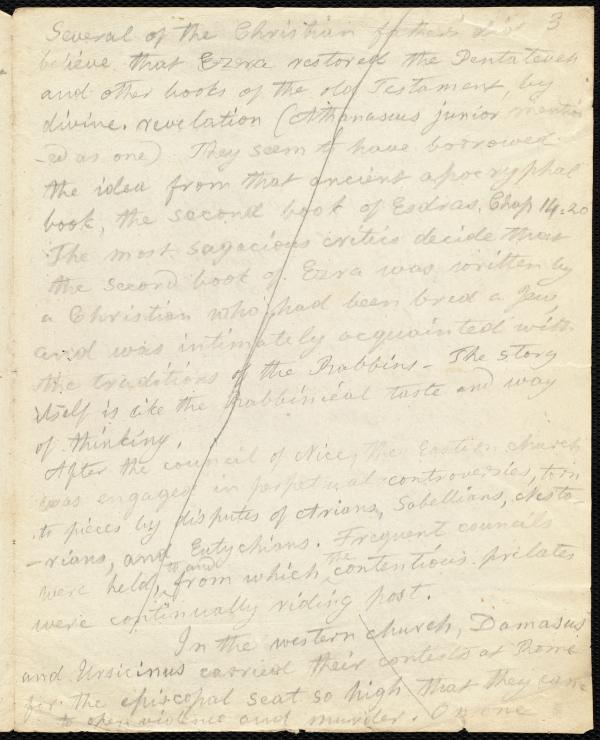 3
Several of the Christian fathers did
believe that Ezra restored the Pentateuch
and other books of the old Testament, by
divine revelation (Athanasius junior mentio
-ed as one) They seem to have borrowed
the idea from that ancient apocryphal
book, the second book of Esdras, Chap 14.20
The most sagacious critics decide that
the second book of Ezra was written by
a Christian who had been bred a Jew,
and was intimately acquainted with
the traditions of the Rabbins - The story
itself is like the Rabbinical taste and way
of thinking.
After the council of Nice, the Eastern church
was engaged in perpetual controversies, torn
to pieces by disputes of Arians, Sabellians, Nesto
-rians, and Eutychians. Frequent councils
were held, to and from which the contentious prelates
were continually riding post.
In the western church, Damasus
and Ursicinus carried their contests at Rome
for the episcopal seat so high that they came
to open violence and murder. On one